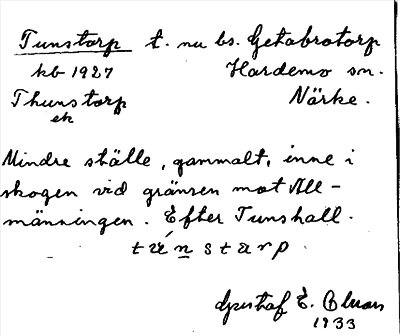 Tunstorp t. nu bs. Getabrotorp
kb 1927 Hardemo sn.
Thunstorp Närke.
ek
Mindre ställe, gammalt, inne i
skogen vid gränsen mot All-
männingen. Efter Tunshall.
Gustaf E.
1933